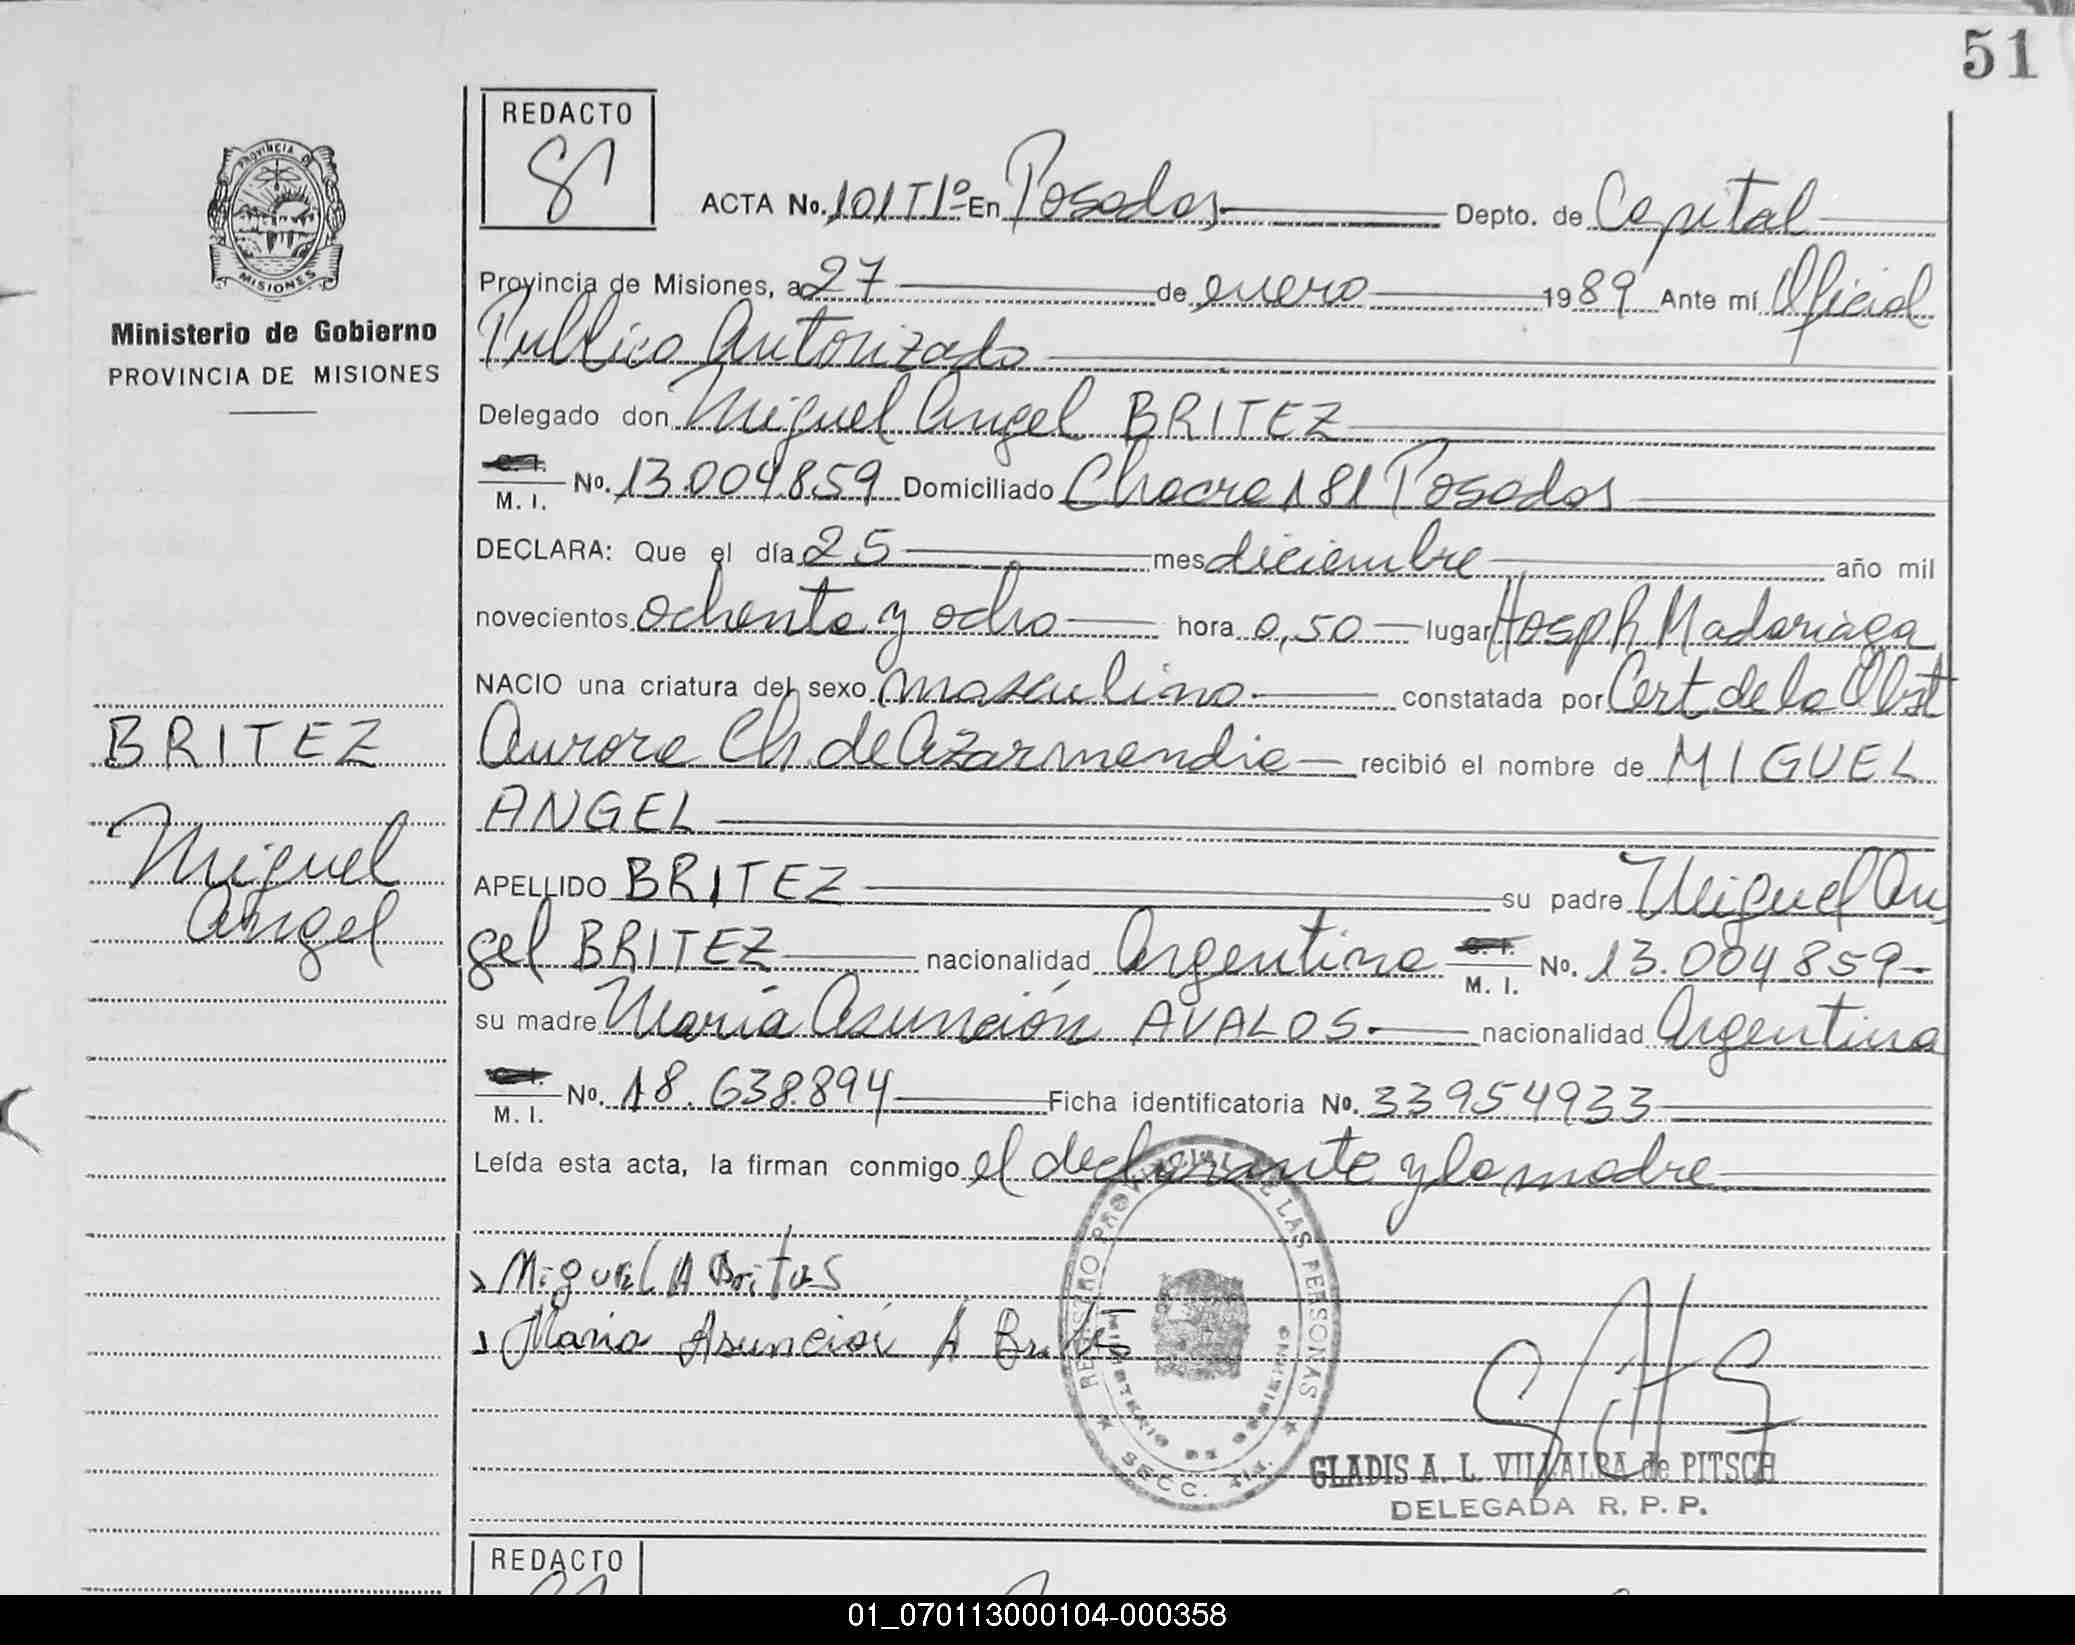 51
REDACTO
ACTA No. 101 T1º En Posadas Depto. de Capital
PROVINCIA DE
MISIONES
Provincia de Misiones, a 27 de enero 1989 Ante mí Oficial
Ministerio de Gobierno
PROVINCIA DE MISIONES
Publico Autorizado
Delegado don Miguel Angel BRITEZ
C. I.
M. I. No. 13.004.859 Domiciliado Chacra 181 Posadas
DECLARA: Que el día 25 mes diciembre año mil
novecientos ochenta y ocho hora 0,50 lugar Hosp R Madariaga
NACIO una criatura del sexo masculino constatada por Cert de la Obst
BRITEZ
Aurora Ch. de Azarmendia recibió el nombre de MIGUEL
ANGEL
Miguel
Angel
APELLIDO BRITEZ su padre Miguel An
gel BRITEZ nacionalidad Argentina C. I. M. I. No. 13.004.859-
su madre María Asunción AVALOS nacionalidad Argentina
C. I.
M. I. No. 18.638.894 Ficha identificatoria No. 33954933
Leída esta acta, la firman conmigo el declarante y la madre
Miguel A Brites
Maria Asunción A
REGISTRO PROVINCIAL DE LAS PERSONAS
MINISTERIO DE GOBIERNO
SECC.
GLADIS A. L. VILLALBA de PITSCH
DELEGADA R. P. P.
REDACTO
01_070113000104-000358